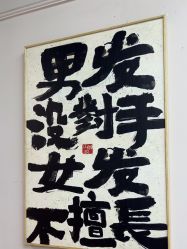 男发
沒對手
女发
不擅長